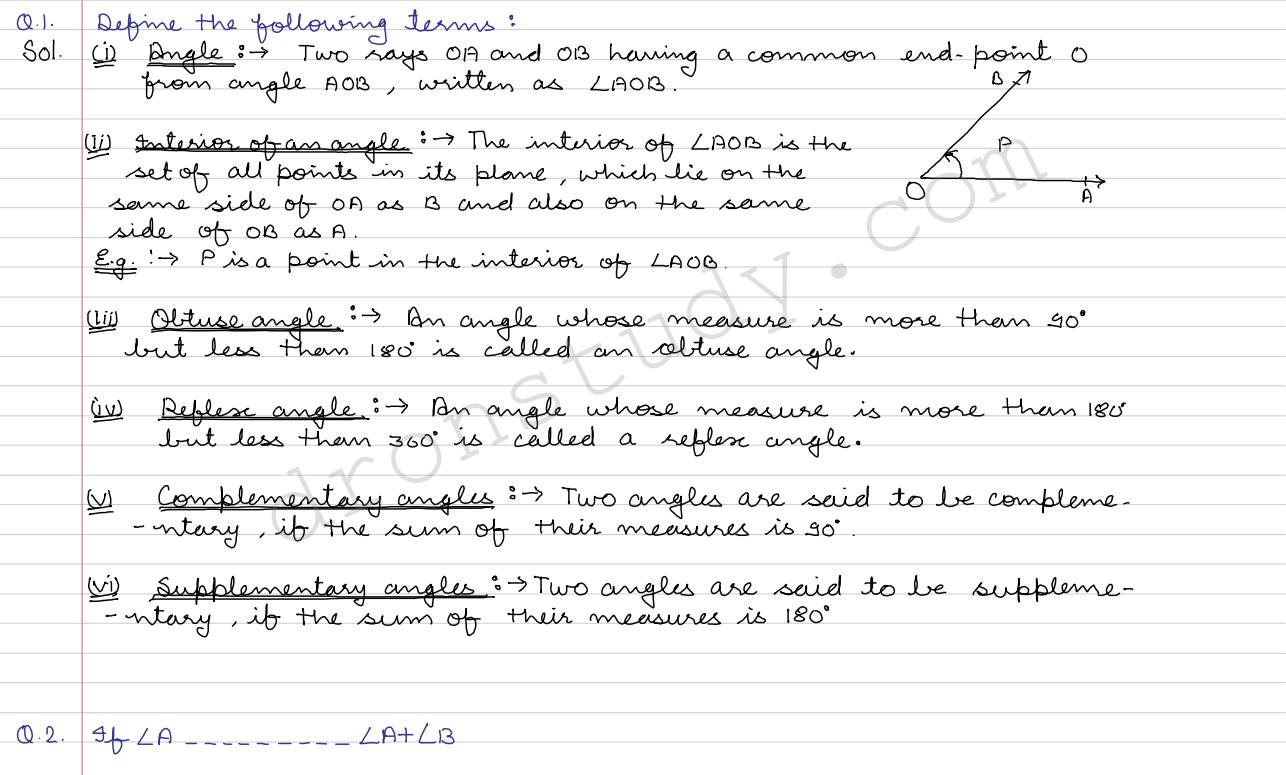 Q.1. Define the following terms :
Sol. (i) Angle :→ Two rays OA and OB having a common end-point O
from angle AOB , written as ∠AOB.
B
(ii) Interior of an angle :→ The interior of ∠AOB is the
P
set of all points in its plane, which lie on the
O
A
same side of OA as B and also on the same
side of OB as A.
E.g. :→ P is a point in the interior of ∠AOB.
(iii) Obtuse angle :→ An angle whose measure is more than 90°
but less than 180° is called an obtuse angle.
(iv) Reflex angle :→ An angle whose measure is more than 180°
but less than 360° is called a reflex angle.
(v) Complementary angles :→ Two angles are said to be compleme-
-ntary , if the sum of their measures is 90°.
(vi) Supplementary angles :→ Two angles are said to be suppleme-
-ntary , if the sum of their measures is 180°
Q.2. If ∠A _ _ _ _ _ _ _ _ _ ∠A+∠B
dronstudy.com